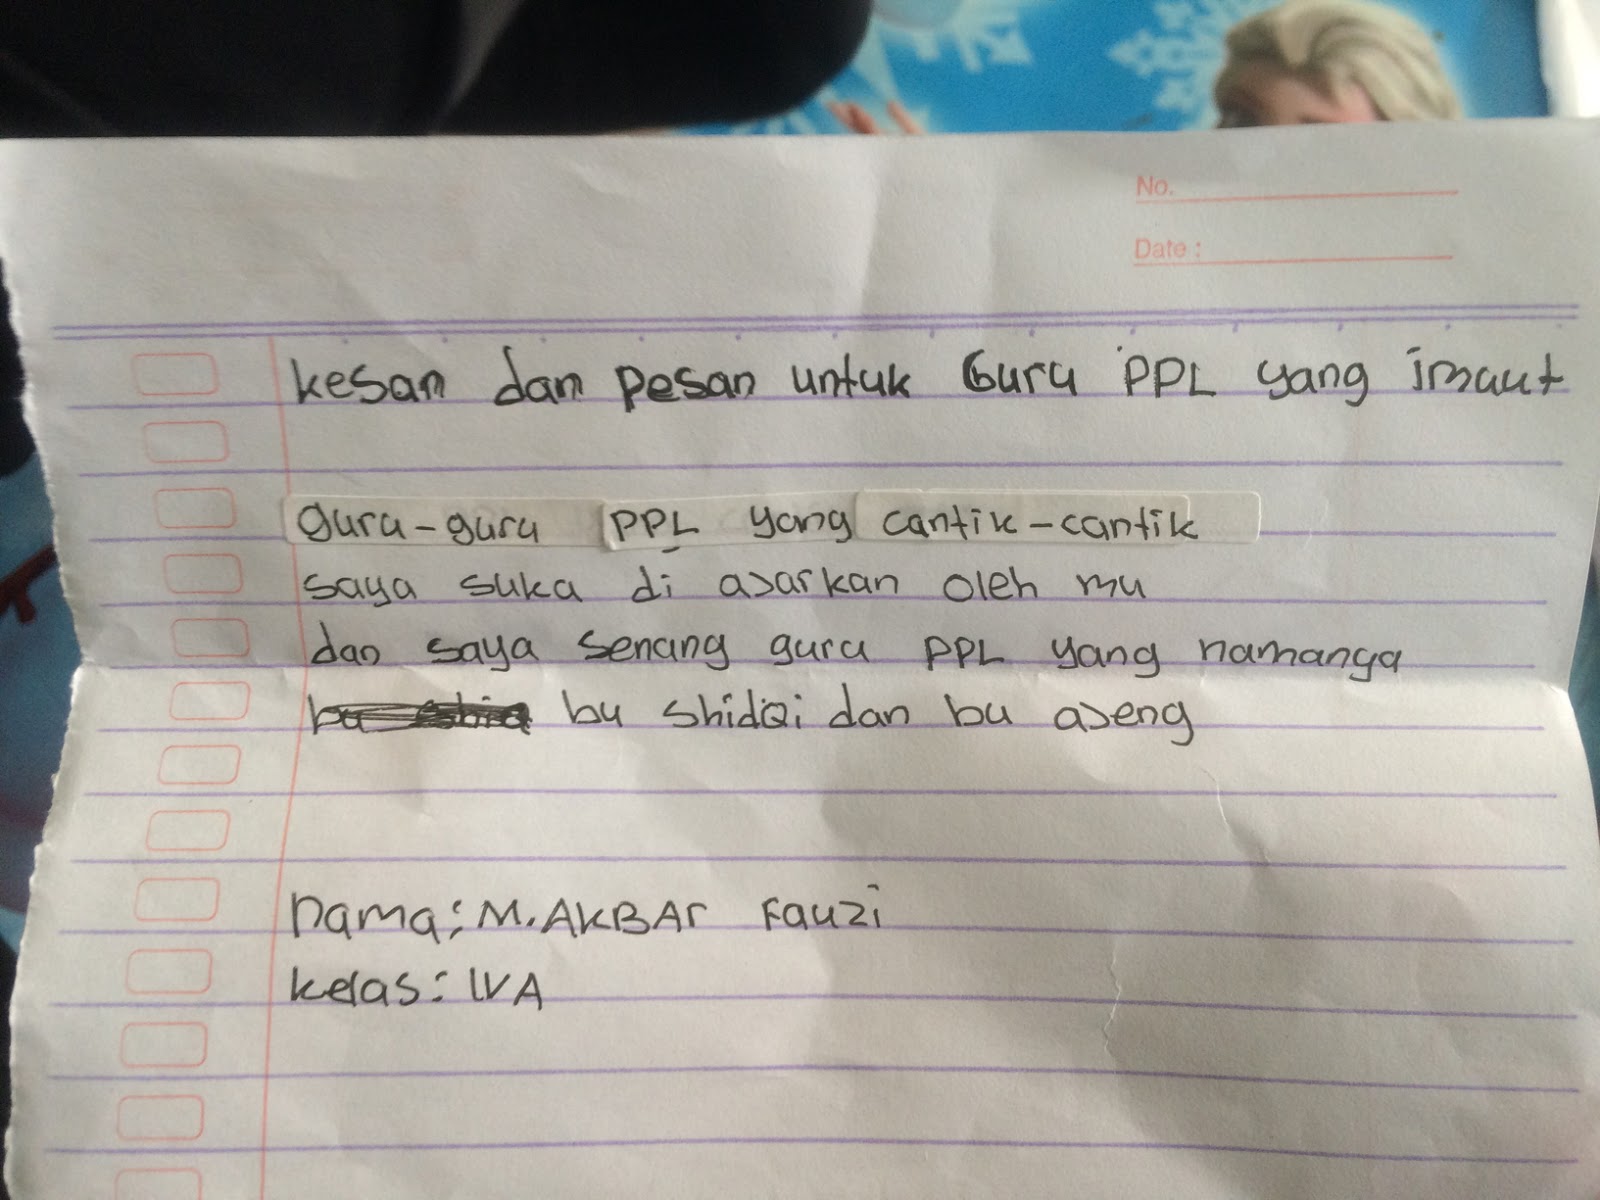 No.
Date :
kesan dan pesan untuk Guru PPL yang imaut
guru-guru PPL yang cantik-cantik
saya suka di ajarkan oleh mu
dan saya senang guru PPL yang namanga
bu shidqi dan bu ajeng
nama: M. AKBAR Fauzi
kelas: IVA